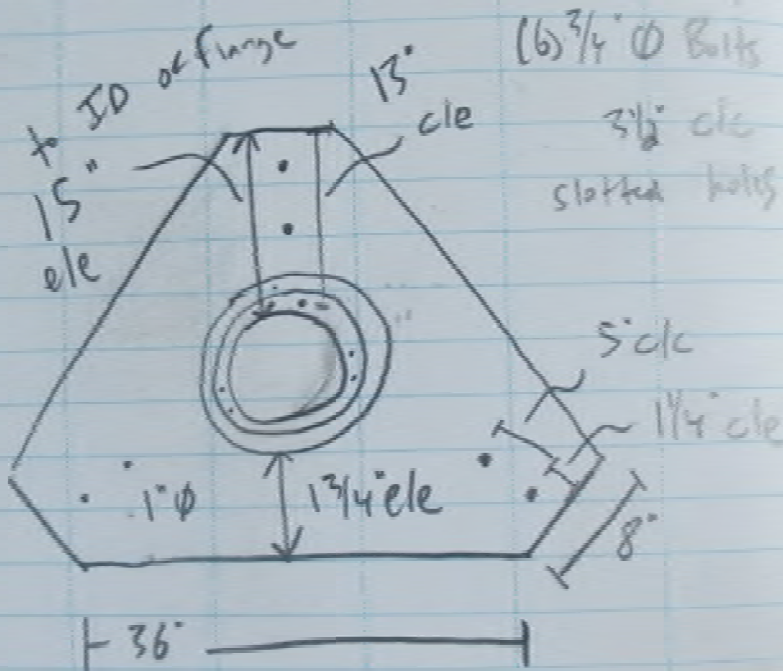 to ID of flange
15" ele
13" cle
(6) 3/4" Ø Bolts
3 1/2" c/c
slotted holes
5" c/c
1 1/4" cle
8"
1" Ø
1 3/4" ele
36"